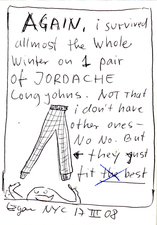 AGAIN, i survived
allmost the whole
winter on 1 pair
of JORDACHE
Longjohns. NOT THAT
i don't have
other ones-
No No. But
they just
fit the best
NYC 17 III 08